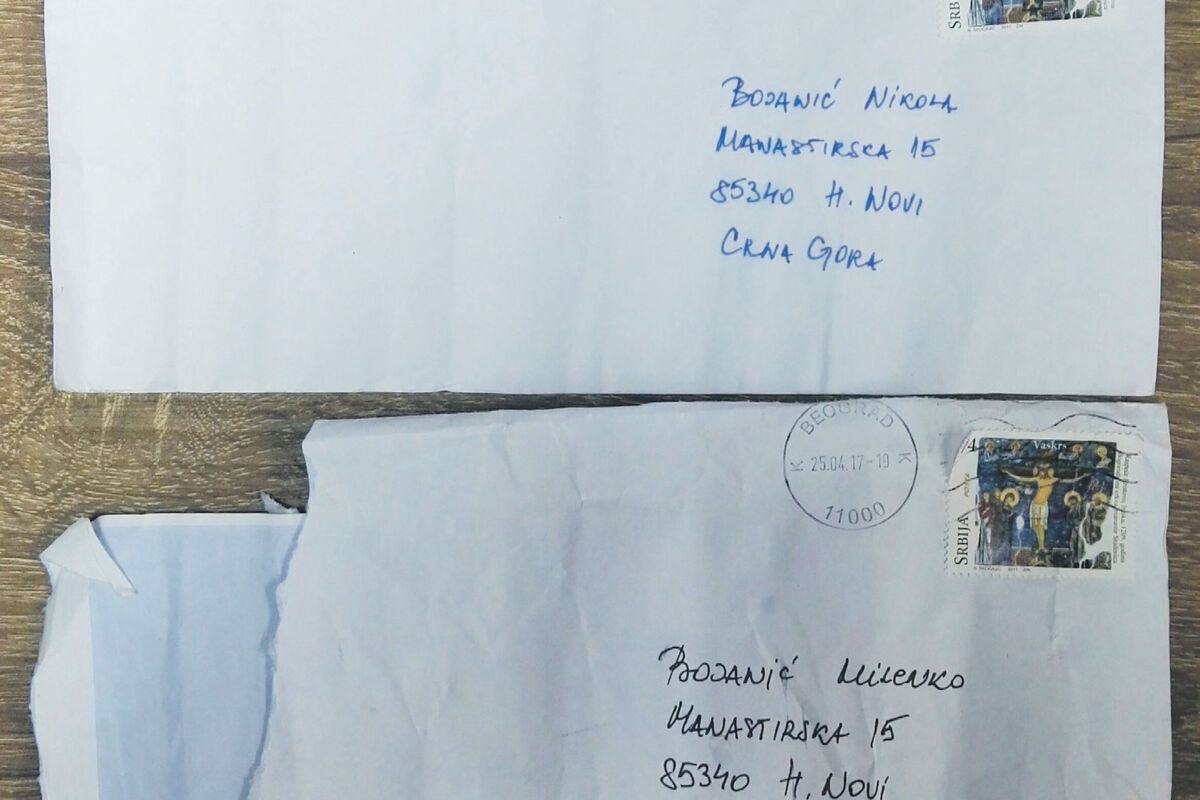 SRB
BOJANIĆ NIKOLA
MANASTIRSKA 15
85340 H. NOVI
CRNA GORA
BEOGRAD
K 25.04.17-19 K
11000
Vaskrs
SRBIJA
BOJANIĆ MILENKO
MANASTIRSKA 15
85340 H. NOVI